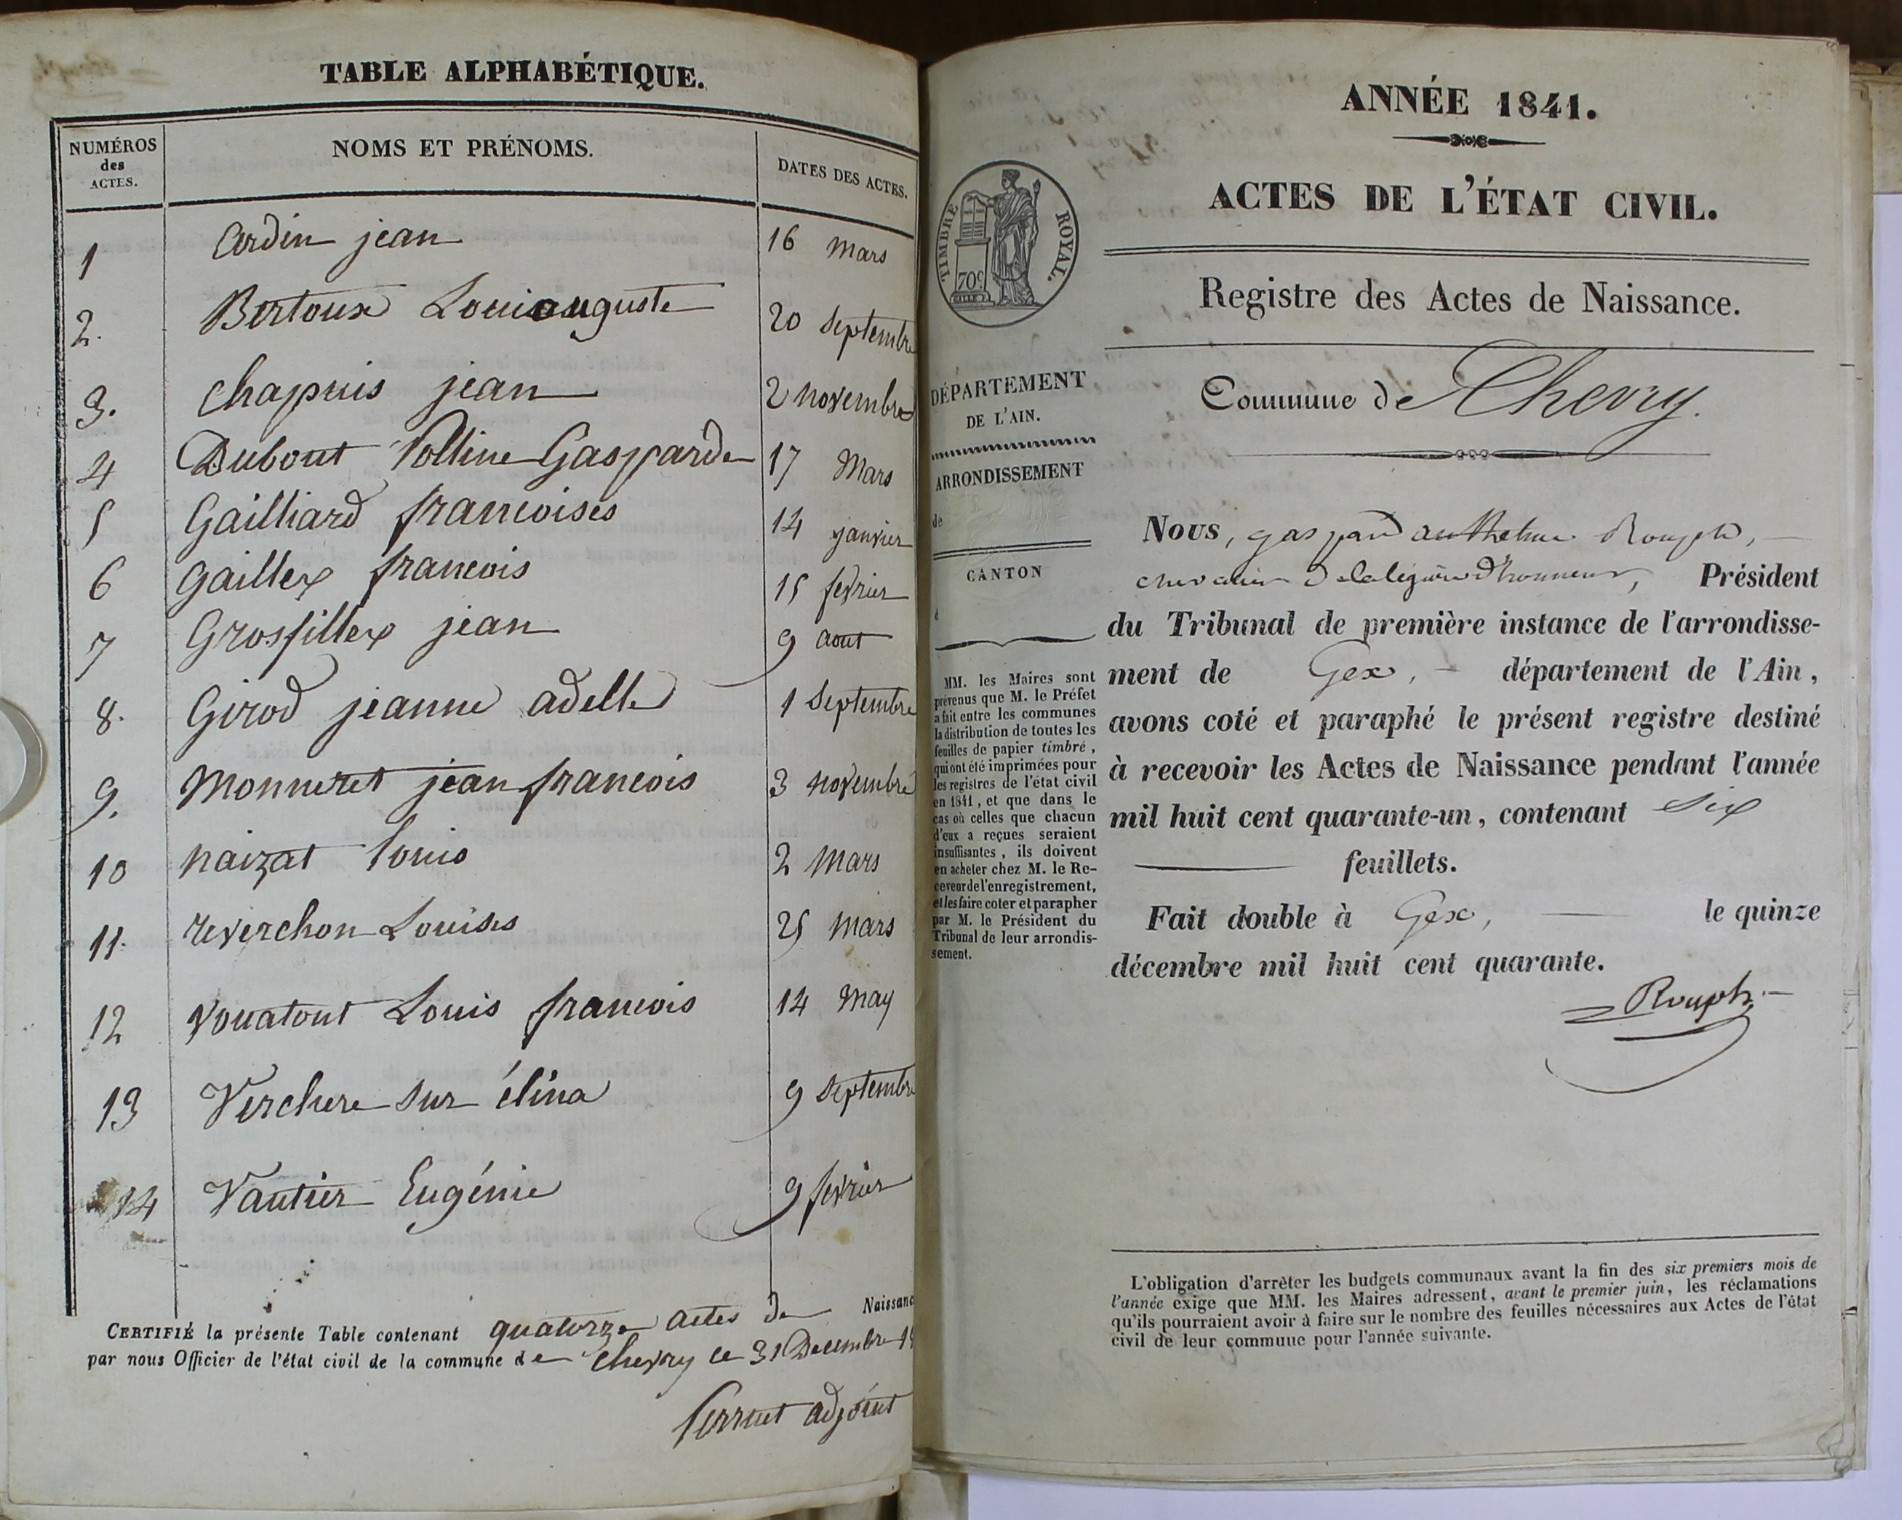 TABLE ALPHABÉTIQUE.
NUMÉROS des ACTES. NOMS ET PRÉNOMS. DATES DES ACTES.
1 Cardin jean 16 mars
2. Bertoux Louis auguste 20 septembre
3. Chapuis jean 2 novembre
4 Dubout Polline Gasparde 17 Mars
5 Gailliard francoises 14 janvier
6 Gaillex francois 15 fevrier
7 Grosfillex jean 9 aout
8. Girod jeanne adelle 1 Septembre
9. Monneret jean francois 3 novembre
10 naizat Louis 2 Mars
11. reverchon Louises 25 Mars
12 Vouatout Louis francois 14 May
13 Verchere sur élina 9 Septembre
14 Vautier Eugénie 9 fevrier
CERTIFIÉ la présente Table contenant quatorze actes de Naissanc
par nous Officier de l'état civil de la commune de Chevry ce 31 Decembre 18
Perrut adjoint
ANNÉE 1841.
ACTES DE L'ÉTAT CIVIL.
TIMBRE ROYAL.
70c
Registre des Actes de Naissance.
Commune de Chevry.
DÉPARTEMENT
DE L'AIN.
ARRONDISSEMENT
de
CANTON
d
MM. les Maires sont
prévenus que M. le Préfet
a fait entre les communes
la distribution de toutes les
feuilles de papier timbré,
qui ont été imprimées pour
les registres de l'état civil
en 1841, et que dans le
cas où celles que chacun
d'eux a reçues seraient
insuffisantes, ils doivent
en acheter chez M. le Re-
ceveur de l'enregistrement,
et les faire coter et parapher
par M. le Président du
Tribunal de leur arrondis-
sement.
Nous, gaspard anthelme Rouph,
chevalier de la légion d'honneur, Président
du Tribunal de première instance de l'arrondisse-
ment de Gex, département de l'Ain,
avons coté et paraphé le présent registre destiné
à recevoir les Actes de Naissance pendant l'année
mil huit cent quarante-un, contenant six
feuillets.
Fait double à Gex, le quinze
décembre mil huit cent quarante.
Rouph
L'obligation d'arrêter les budgets communaux avant la fin des six premiers mois de
l'année exige que MM. les Maires adressent, avant le premier juin, les réclamations
qu'ils pourraient avoir à faire sur le nombre des feuilles nécessaires aux Actes de l'état
civil de leur commune pour l'année suivante.